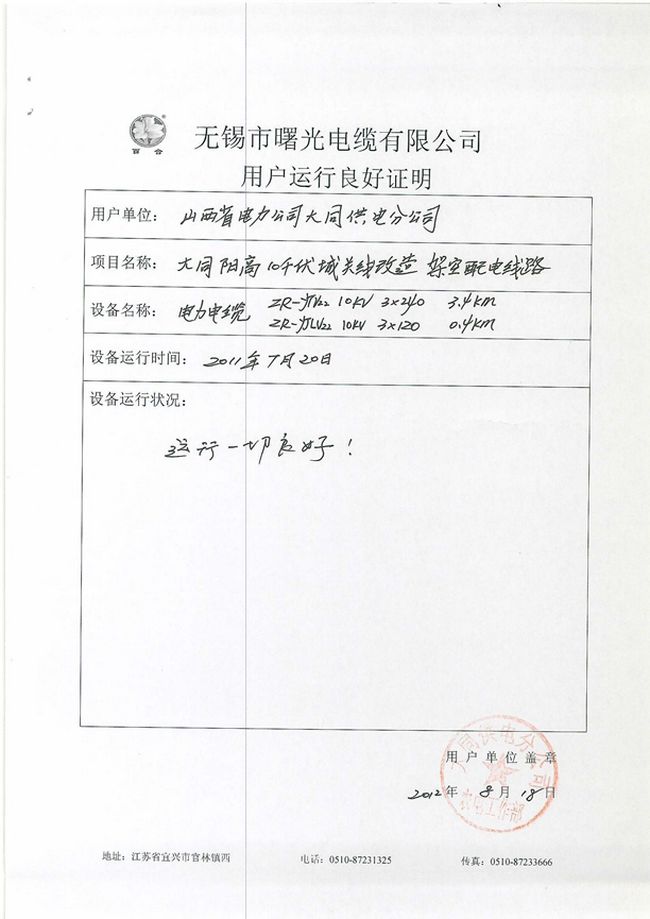 百合
无锡市曙光电缆有限公司
用户运行良好证明
用户单位：山西省电力公司大同供电分公司
项目名称：大同阳高10千伏城关线改造 架空配电线路
设备名称：电力电缆 ZR-YJV22 10KV 3×240 3.4km
ZR-YJLV22 10KV 3×120 0.4km
设备运行时间：2011年7月20日
设备运行状况：
运行一切良好！
大同供电分公司
用户单位盖章
2012年 8月 18日
农电工作部
地址：江苏省宜兴市官林镇西 电话：0510-87231325 传真：0510-87233666